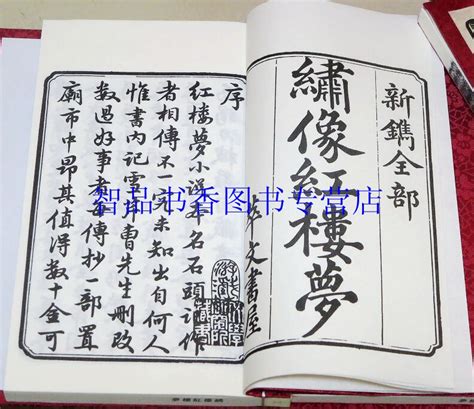 新鐫全部
繡像紅樓夢
萃文書屋
序
紅楼夢小說本名石頭記作
者相傳不一究未知出自何人
惟書内記雪芹曹先生刪改
数過好事者每傳抄一部置
廟市中昂其值得数十金可
智品书香图书专营店
夢樓紅像繡